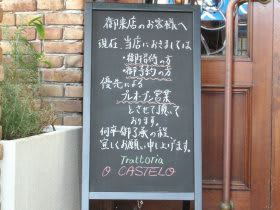 御来店のお客様へ
現在、当店におきましては
・御招待の方
・御予約の方
優先による
プレオープン営業
とさせて頂いて
おります。
何卒御了承の程、
宜しくお願い申し上げます。
Trattoria
O CASTELO